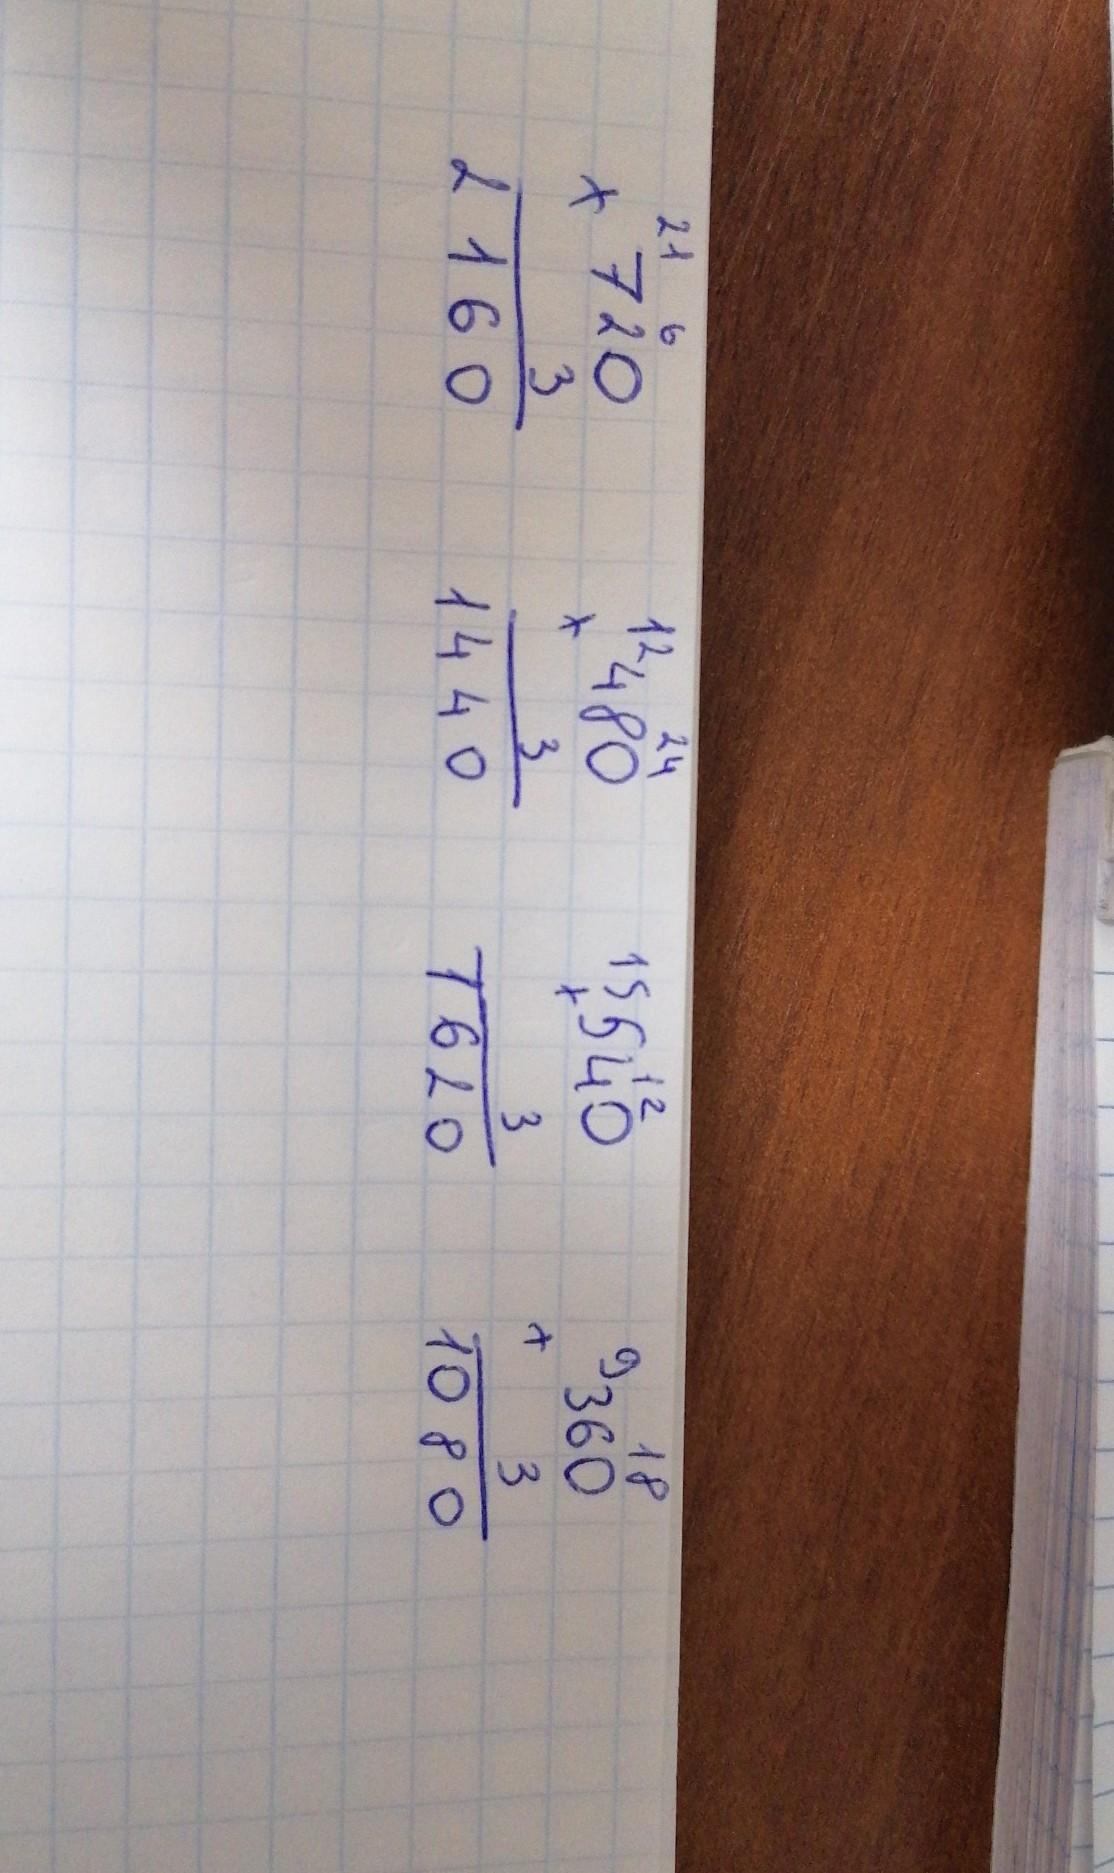 21 6
× 720
3
2160
12 24
× 480
3
1440
15 12
× 540
3
1620
9 18
× 360
3
1080